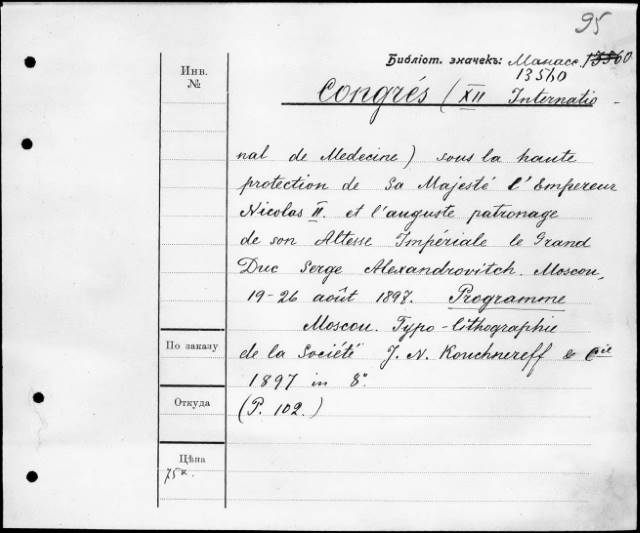 95
Библіот. значекъ: Манасс. 13560
13560
Инв.
№
Congrés (XII Internatio
nal de Medecine) sous la haute
protection de Sa Majesté l'Empereur
Nicolas II. et l'auguste patronage
de son Altesse Impériale le Grand
Duc Serge Alexandrovitch. Moscou,
19-26 août 1897. Programme
Moscou. Typo-lithographie
По заказу
de la Société J. N. Kouchnereff & Cie
1897 in 8°
Откуда
(P. 102.)
Цѣна
75к.